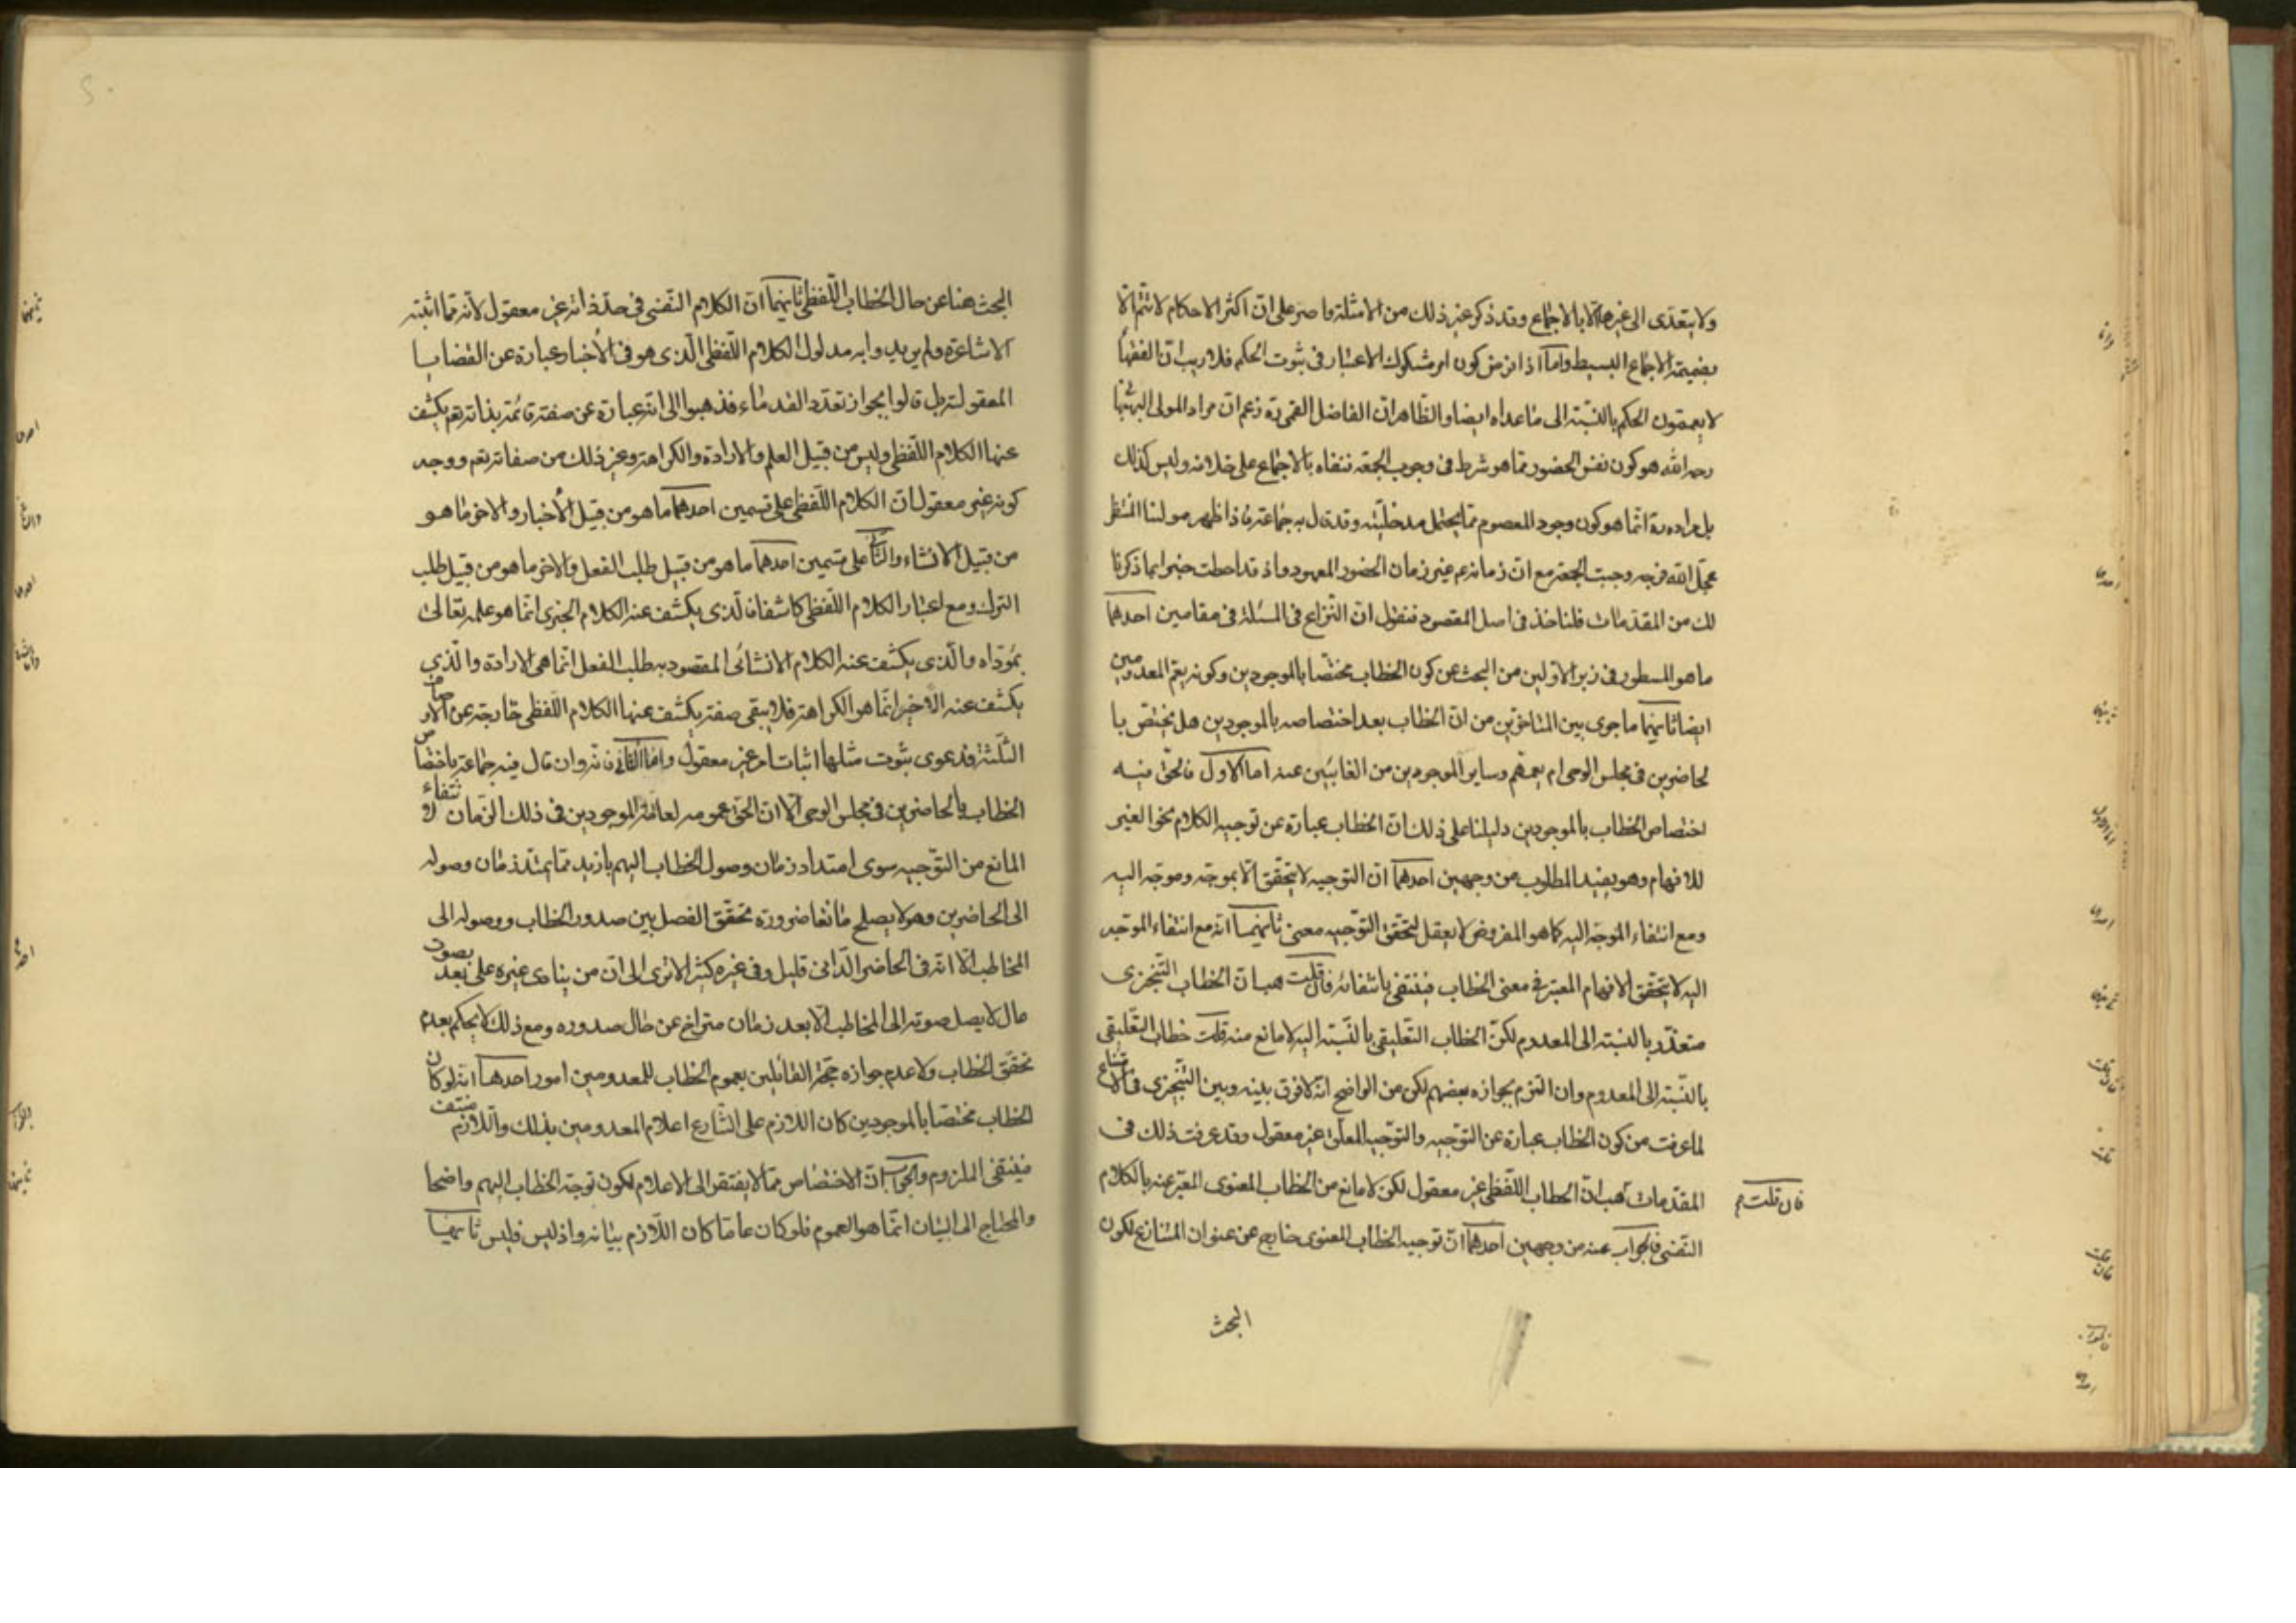 ولا يتعدى الى غيرها الا بالاجماع وقد ذكر غير ذلك من الامثلة وما صر على ان اكثر الاحكام لا تتم الا
بضميمة الاجماع البسيط واما اذا فرض كون امر مشكوك الاعتبار فى ثبوت الحكم فلا ريب ان الفقهاء
لا يعممون الحكم بالنسبة الى ما عداه ايضا والظاهر ان الفاضل القمى ره زعم ان مراد المولى البهبهانى
رحمه الله هو كون نفس الحضور مما هو شرط فى وجوب الجمعة فنفاه بالاجماع على خلافه وليس كذلك
بل مراده ره انما هو كون وجود المعصوم مما يحتمل مدخليته وقد قال به جماعة فاذا ظهر مولنا المنتظر
عجل الله فرجه وجبت الجمعة مع ان زمانه عم غير زمان الحضور المعهود واذ قد احطت خبرا بما ذكرنا
لك من المقدمات فلناخذ فى اصل المقصود فنقول ان النزاع فى المسئلة فى مقامين احدهما
ما هو المسطور فى زبر الاولين من البحث عن كون الخطاب مختصا بالموجودين وكونه يعم المعدومين
ايضا ثانيهما ما جرى بين المتاخرين من ان الخطاب بعد اختصاصه بالموجودين هل يختص با
لحاضرين فى مجلس الوحى ام يعمهم وساير الموجودين من الغائبين عنه اما الاول فالحق فيه
اختصاص الخطاب بالموجودين دليلنا على ذلك ان الخطاب عبارة عن توجيه الكلام نحو الغير
للافهام وهو يفيد المطلوب من وجهين احدهما ان التوجيه لا يتحقق الا بموجه وموجه اليه
ومع انتفاء الموجه اليه كما هو المفروض لا يعقل لتحقق التوجيه معنى ثانيهما انه مع انتفاء الموجه
اليه لا يتحقق الافهام المعتبر فى معنى الخطاب فينتفى بانتفائه فان قلت هب ان الخطاب التنجزى
متعذر بالنسبة الى المعدوم لكن الخطاب التعليقى بالنسبة اليه لا مانع منه قلت خطاب التعليقى
بالنسبة الى المعدوم وان التزم بجوازه بعضهم لكن من الواضح انه لا فرق بينه وبين التنجزى فى الامتناع
لما عرفت من كون الخطاب عبارة عن التوجيه والتوجيه المعلق غير معقول وقد عرفت ذلك فى
المقدمات هب ان الخطاب اللفظى غير معقول لكن لا مانع من الخطاب المعنوى المعبر عنه بالكلام
فان قلت
النفسى فالجواب عنه من وجهين احدهما ان توجيه الخطاب المعنوى خارج عن عنوان المتنازع لكون
البحث
البحث هنا عن حال الخطاب اللفظى ثانيهما ان الكلام النفسى فى حد ذاته غير معقول لانه مما اثبته
الاشاعرة ولم يريدوا به مدلول الكلام اللفظى الذى هو فى الأخبار عبارة عن القضايا
المعقولة بل قالوا بجواز تعدد القدماء فذهبوا الى انه عبارة عن صفة قائمة بذاته هم يكشف
عنها الكلام اللفظى وليس من قبيل العلم والارادة والكراهة وغير ذلك من صفاته نعم ووجه
كونه غير معقول ان الكلام اللفظى على قسمين احدهما ما هو من قبيل الأخبار والاخر ما هو
من قبيل الانشاء والثانى على قسمين احدهما ما هو من قبيل طلب الفعل والاخر ما هو من قبيل طلب
الترك ومع اعتبار الكلام اللفظى كاشفا فالذى يكشف عنه الكلام الخبرى انما هو علمه تعالى
بمؤداه والذى يكشف عنه الكلام الانشائى المقصود به طلب الفعل انما هى الارادة والذى
يكشف عنه الأخير انما هو الكراهة فلا يبقى صفة يكشف عنها الكلام اللفظى خارجة عن
الثلثة فدعوى ثبوت مثلها اثبات امر غير معقول واما الثانى فانه وان قال فيه جماعة باختصاص
الخطاب بالحاضرين فى مجلس الوحى الا ان الحق عمومه لعامة الموجودين فى ذلك الزمان لانتفاء
المانع من التوجيه سوى امتداد زمان وصول الخطاب اليهم بازيد مما يمتد زمان وصوله
الى الحاضرين وهو لا يصلح مانعا ضرورة تحقق الفصل بين صدور الخطاب ووصوله الى
المخاطب الا انه فى الحاضر الدانى قليل وفى غيره كثير الا ترى الى ان من ينادى غيره على بعد بصوت
عال لا يصل صوته الى المخاطب الا بعد زمان متراخ عن حال صدوره ومع ذلك لا يحكم بعدم
تحقق الخطاب ولا عدم جوازه حجة القائلين بعموم الخطاب للمعدومين امور احدها انه لو كان
الخطاب مختصا بالموجودين كان اللازم على الشارع اعلام المعدومين بذلك واللازم منتف
فينتفى الملزوم والجواب ان الاختصاص مما لا يفتقر الى الاعلام لكون توجه الخطاب اليهم واضحا
والمحتاج الى البيان انما هو العموم فلو كان عاما كان اللازم بيانه واذ ليس فليس ثانيها